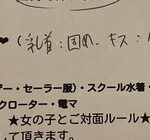 ♥(乳首:固め、キス:
ザー・セーラー服)・スクール水着・
クローター・電マ
★女の子とご対面ルール★
して頂きます。